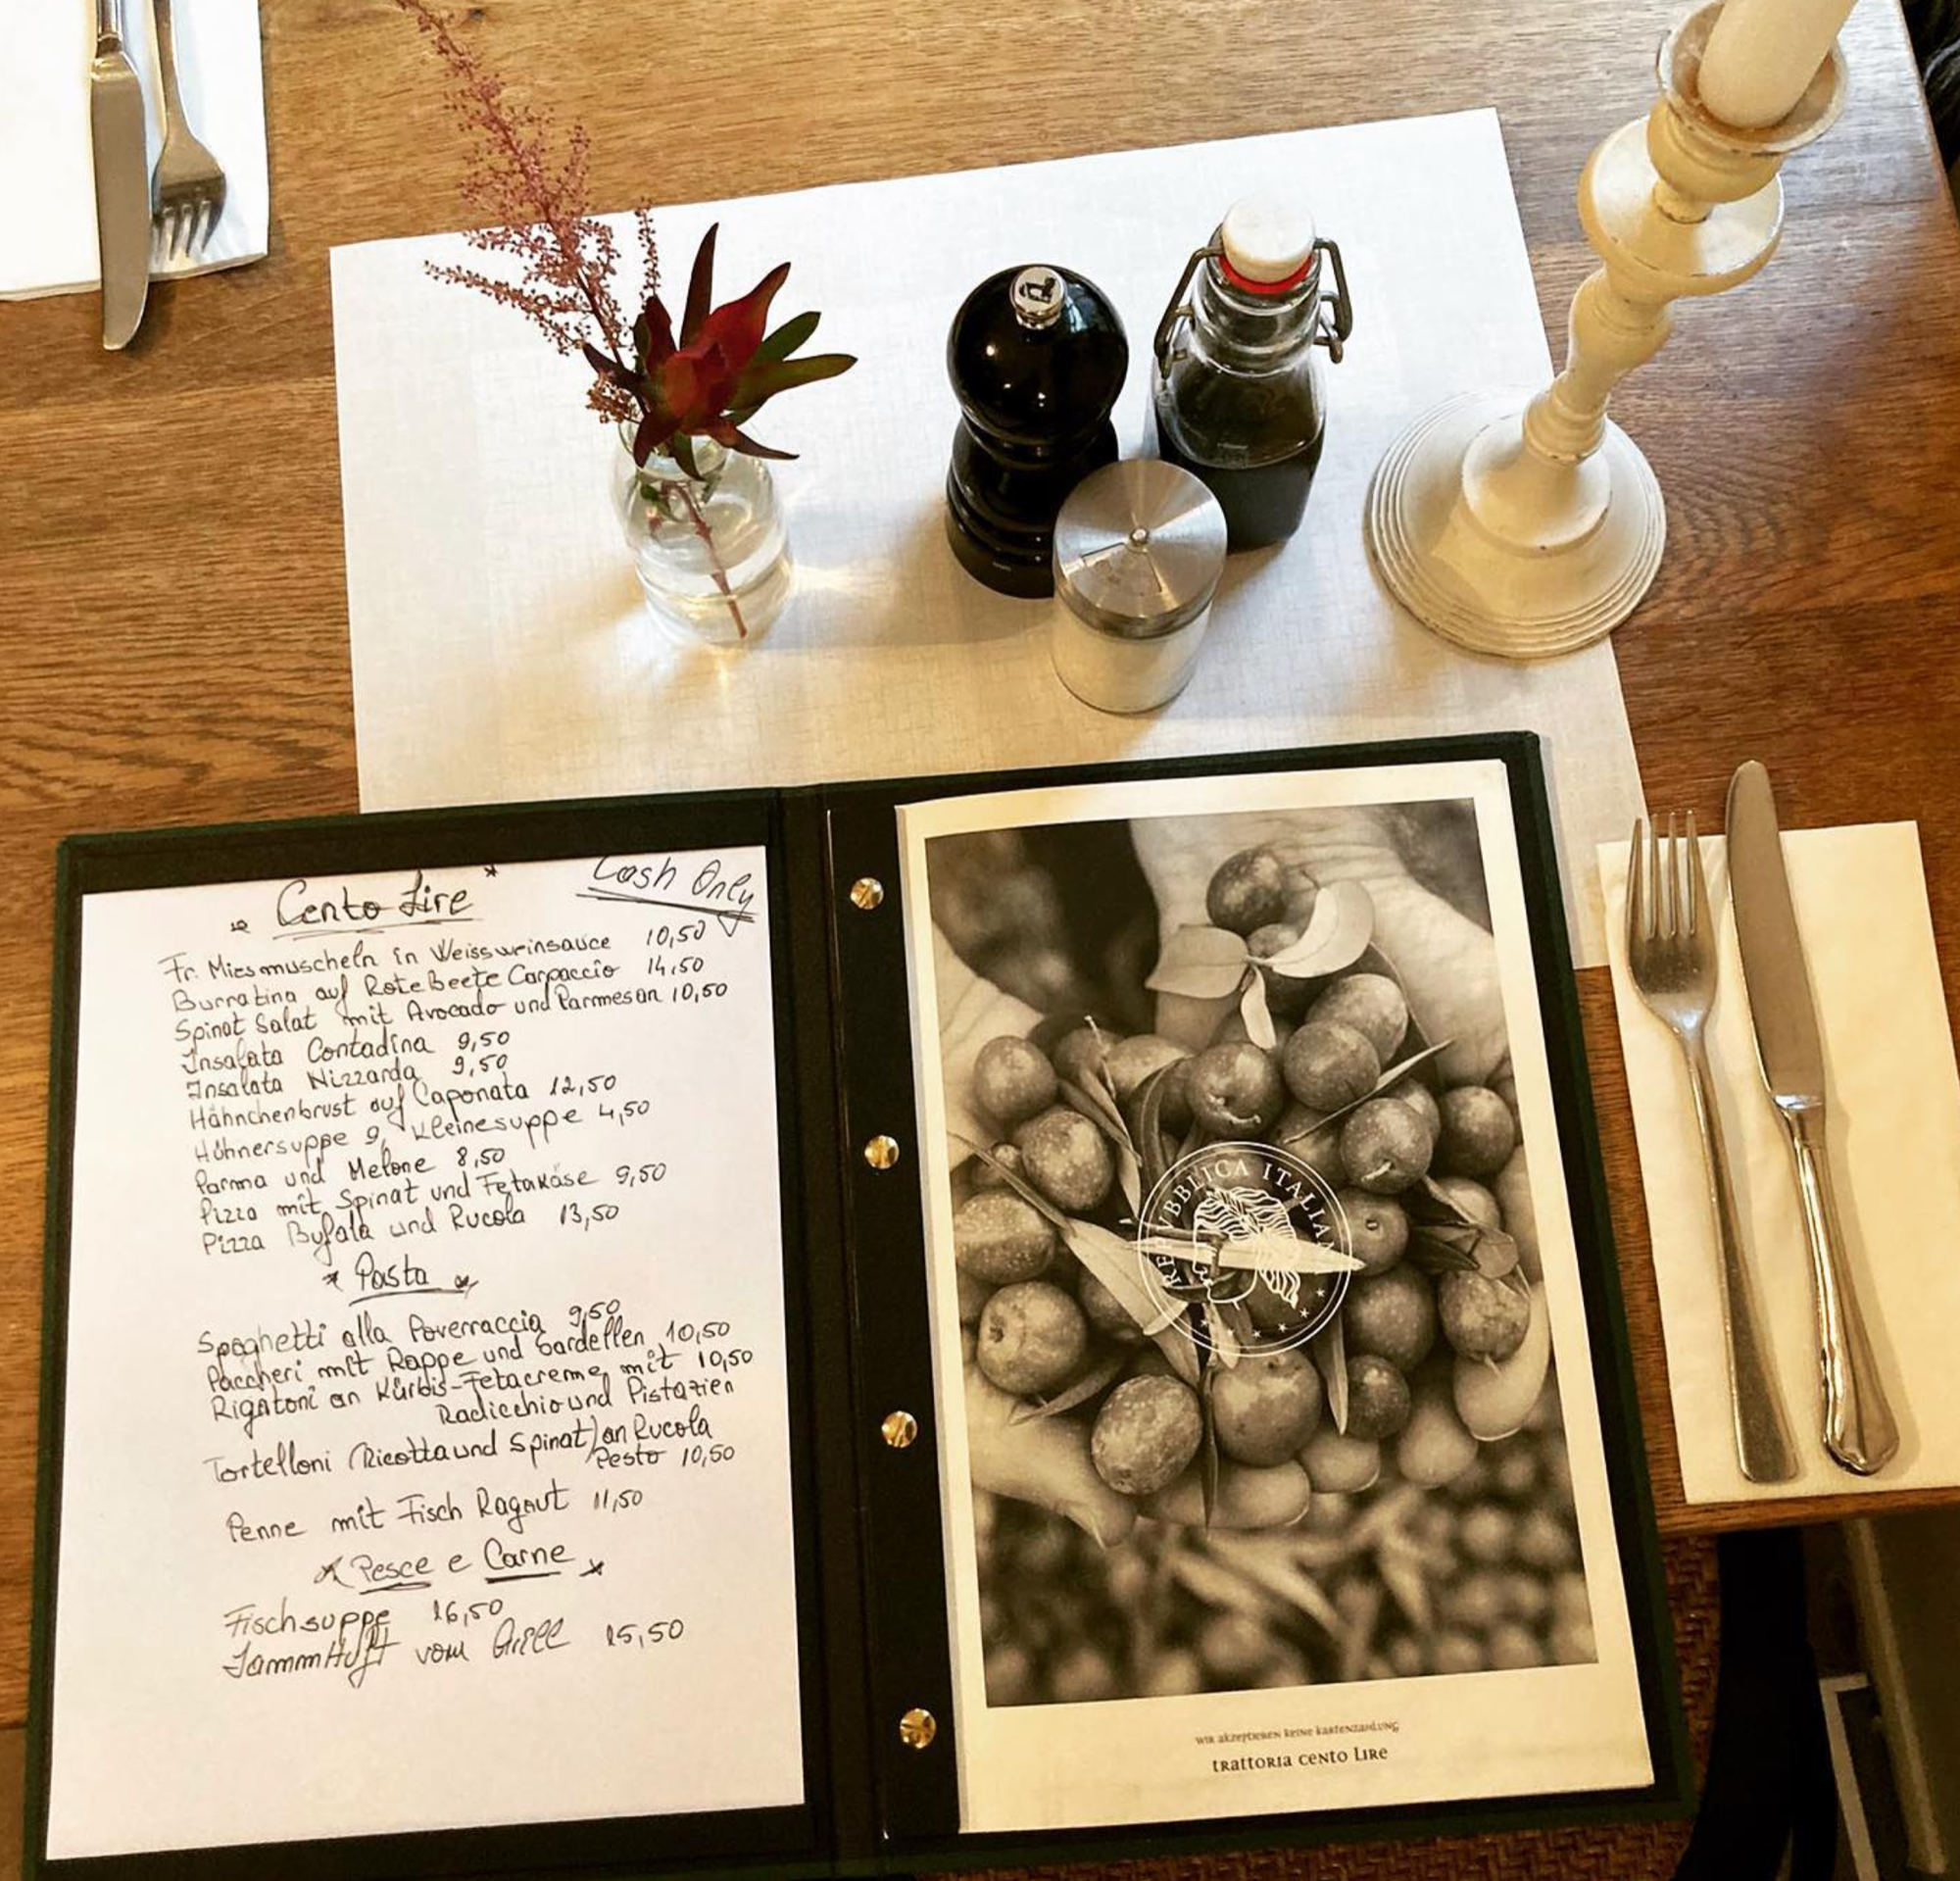 Cento Lire
Cash Only
Fr. Miesmuscheln in Weissweinsauce 10,50
Burratina auf Rote Beete Carpaccio 14,50
Spinat Salat mit Avocado und Parmesan 10,50
Insalata Contadina 9,50
Insalata Nizzarda 9,50
Hähnchenbrust auf Caponata 12,50
Hühnersuppe 9, Kleinesuppe 4,50
Parma und Melone 8,50
Pizza mit Spinat und Fetakäse 9,50
Pizza Bufala und Rucola 13,50
Pasta
Spaghetti alla Poverraccia 9,50
Paccheri mit Rappe und Sardellen 10,50
Rigatoni an Kürbis-Fetacreme mit 10,50
Radicchio und Pistazien
Tortelloni (Ricotta und Spinat) an Rucola
Pesto 10,50
Penne mit Fisch Ragout 11,50
Pesce e Carne
Fischsuppe 16,50
LammHüft vom Grill 15,50
REPVBBLICA ITALIANA
wir akzeptieren keine kartenzahlung
trattoria cento Lire